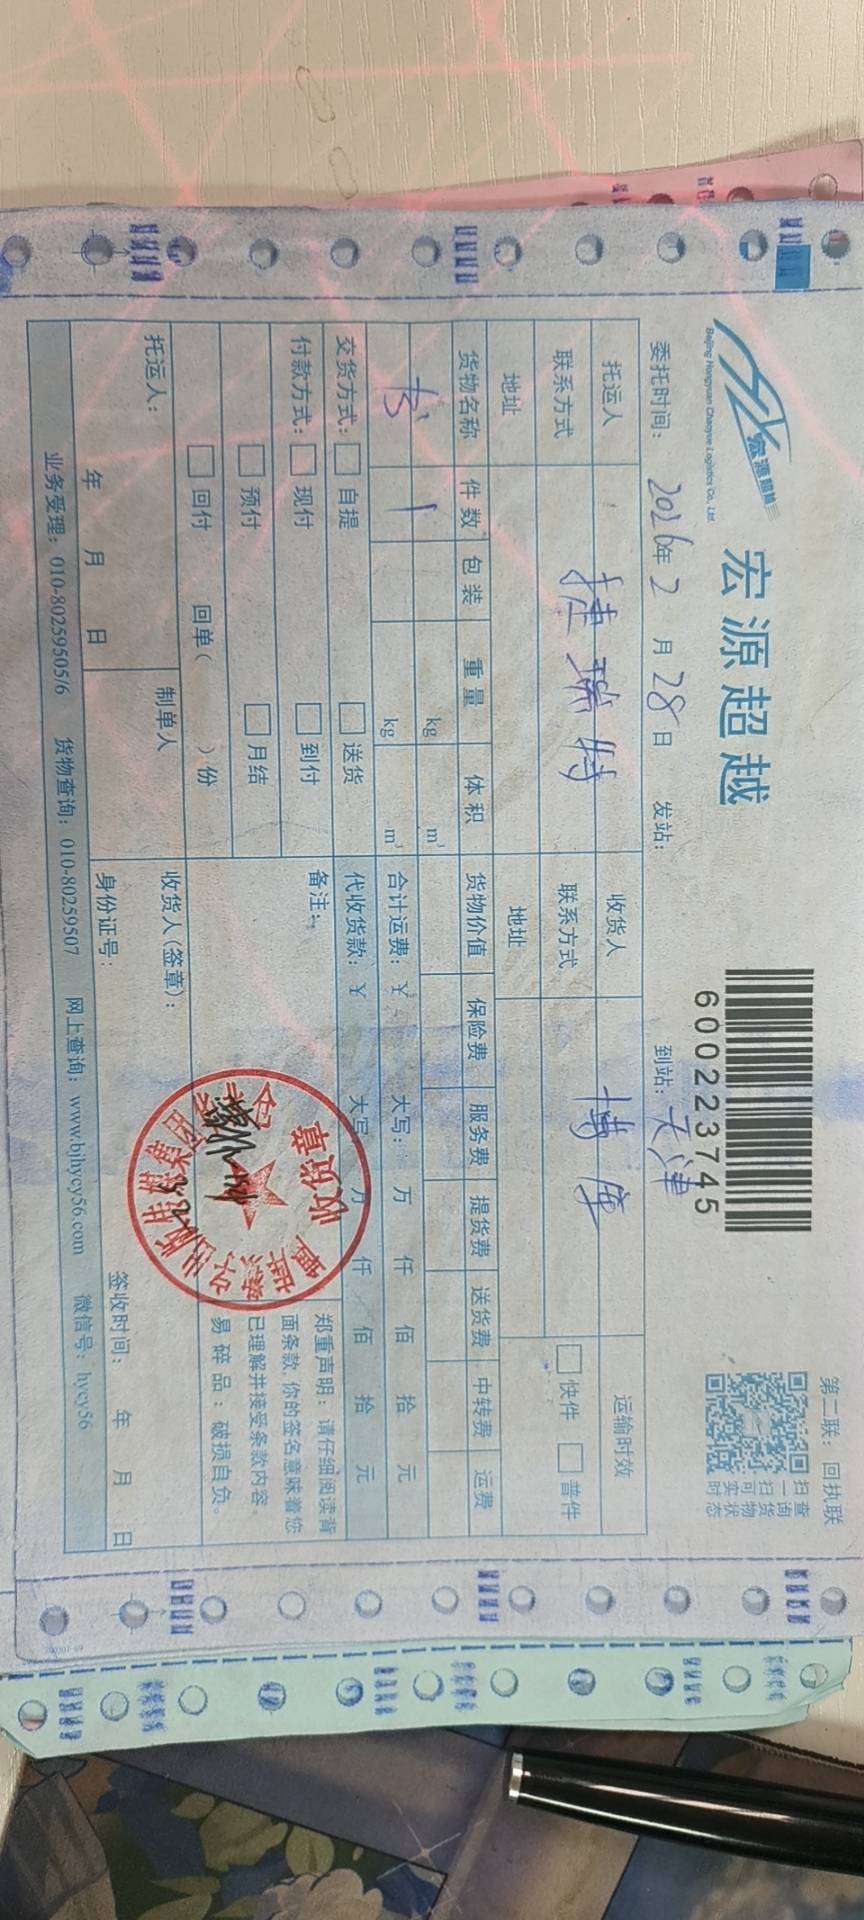 宏源超越
Beijing Hongyuan Chaoyue Logistics Co., Ltd.
宏源超越
6000223745
第二联：回执联
扫一扫可实时
查询货物状态
委托时间： 2026年 2 月 28日 发站： 到站：天津
托运人 捷瑞特 收货人 博库 运输时效
联系方式 联系方式 快件 普件
地址 地址
货物名称 件数 包装 重量 体积 货物价值 保险费 服务费 提货费 送货费 中转费 运费
书 1 kg m³
kg m³ 合计运费：¥ 大写： 万 仟 佰 拾 元
交货方式： 自提 送货 代收货款：¥ 大写： 万 仟 佰 拾 元
付款方式： 现付 到付 备注：
预付 月结
回付 回单（ ）份
郑重声明：请仔细阅读背
面条款，你的签名意味着您
已理解并接受条款内容。
易碎品：破损自负。
收货章
托运人： 制单人 收货人（签章）：
年 月 日 身份证号： 签收时间： 年 月 日
业务受理：010-80259505/6 货物查询：010-80259507 网上查询：www.bjhycy56.com 微信号：hycy56